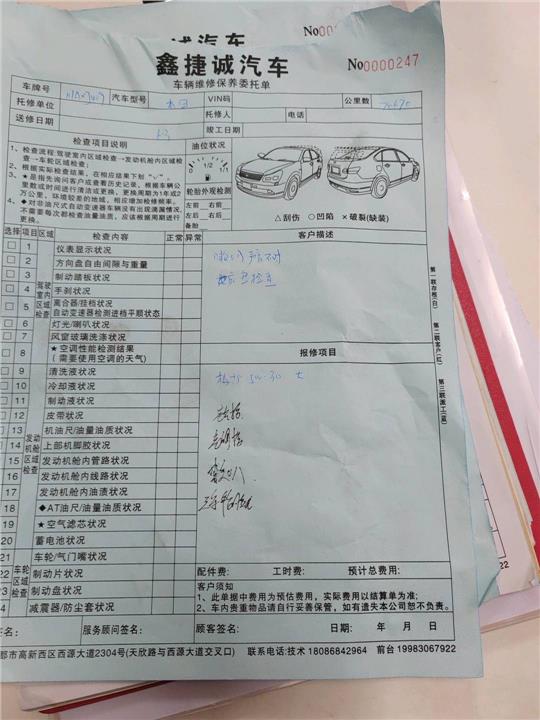 诚汽车
No
鑫捷诚汽车
No0000247
车辆维修保养委托单
车牌号 汽车型号 本田 VIN码 公里数
托修单位 托修人 电话
送修日期 竣工日期
检查项目说明
油位状况
1、检查流程:驾驶室内区域检查→发动机舱内区域检查→车轮区域检查;
2、根据实际检查结果,在相应结果下划“√”。
3、★是指先询问客户或查看历史记录,根据车辆公里数或时间进行清洁或更换,更换周期为1年或2万公里,环境较差的地域,相应增加检修频率。
4、◆对非油尺式自动变速器车辆没有出现漏油情况,不需要每次都检查油量油质,应该根据周期进行更换。
0 1/2 1/1
轮胎外观检测
左前 右前
左后 右后
备胎
△刮伤 ○凹陷 ×破裂(缺装)
选择 项目 区域 检查内容 正常 异常
客户描述
驾驶室内区域检查
1 仪表显示状况
2 方向盘自由间隙与重量
3 制动踏板状况
4 手刹状况
5 离合器/挂档状况
自动变速器检测进档平顺状态
6 灯光/喇叭状况
7 风窗玻璃洗涤状况
8 ★空调性能检测结果
(需要使用空调的天气)
报修项目
发动机舱区域检查
9 清洗液状况
10 冷却液状况
11 制动液状况
12 皮带状况
13 机油尺/油量油质状况
14 上部机脚胶状况
15 发动机舱内管路状况
16 发动机舱内线路状况
17 发动机舱内油渍状况
18 ◆AT油尺/油量油质状况
19 ★空气滤芯状况
20 蓄电池状况
5W-30
车轮区域检查
21 车轮/气门嘴状况
22 制动片状况
23 制动盘状况
4 减震器/防尘套状况
配件费: 工时费: 预计总费用:
客户须知
1、此单据中费用为预估费用,实际费用以结算单为准;
2、车内贵重物品请自行妥善保管,如有遗失本公司恕不负责。
签名: 服务顾问签名: 顾客签名: 日期: 年 月 日
都市高新西区西源大道2304号(天欣路与西源大道交叉口) 联系电话:技术 18086842964 前台 19983067922
第一联存根(白)
第二联客户(红)
第三联派工(蓝)
22